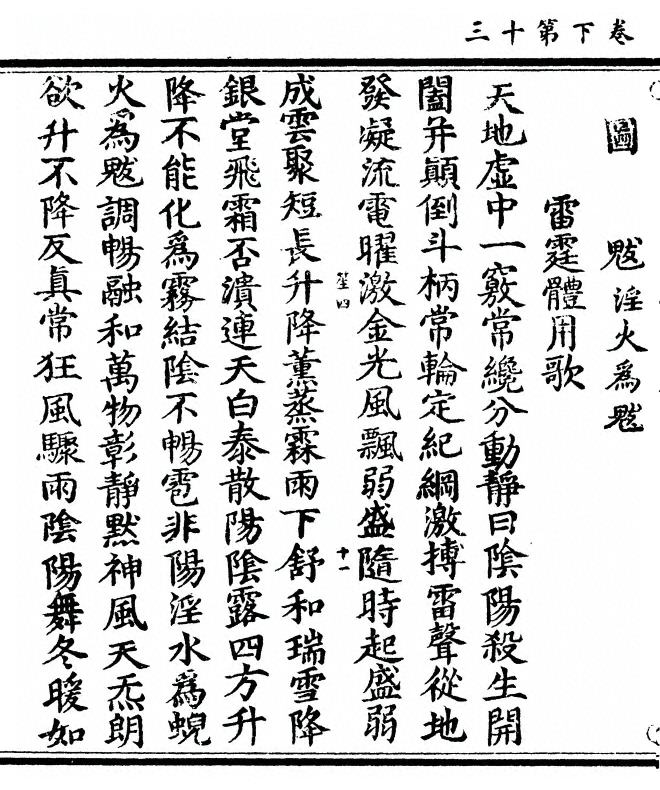 三十第下卷
圖 魃淫火為魃
雷霆體用歌
天地虛中一竅常纔分動靜曰陰陽殺生開
闔并顛倒斗柄常輪定紀綱激搏雷聲從地
發凝流電曜激金光風飄弱盛隨時起盛弱
笙四 十一
成雲聚短長升降薰蒸霖雨下舒和瑞雪降
銀堂飛霜否潰連天白泰散陽陰露四方升
降不能化為霧結陰不暢雹非陽淫水為蜺
火為魃調暢融和萬物彰靜默神風天炁朗
欲升不降反真常狂風驟雨陰陽舞冬暖如